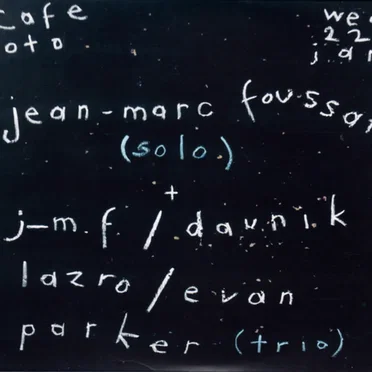 cafe we
oto 22
jan
jean-marc foussat
(solo)
+
j-m.f / daunik
lazro / evan
parker (trio)